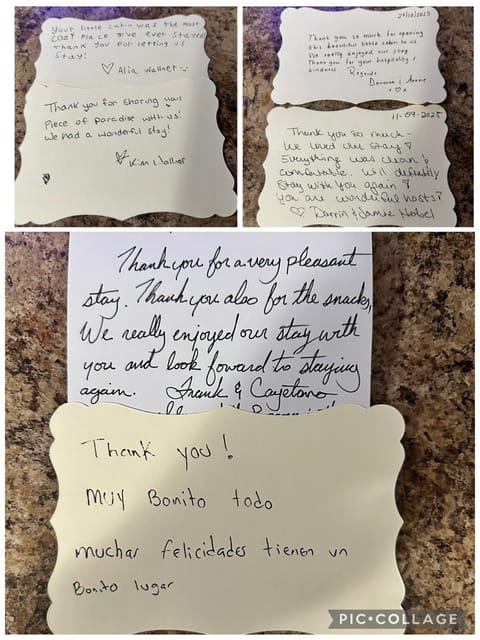 Your little cabin was the most
cozy place I've ever stayed!
Thank you for letting us
stay!
♡ Alia Wallner
Thank you for sharing your
piece of paradise with us!
We had a wonderful stay!
Kim Wallner
2025
Thank you so much for opening
this beautiful little cabin to us.
We really enjoyed our stay.
Thank you for your hospitality &
kindness.
Regards
11-09-2025
Thank you so much-
We loved our stay!
Everything was clean &
comfortable. Will definitely
stay with you again!
You are wonderful hosts!
♡ Darrin & Jamie
Thank you for a very pleasant
stay. Thank you also for the snacks,
We really enjoyed our stay with
you and look foward to staying
again. Frank & Cayetano
Thank you!
Muy Bonito todo
muchas felicidades tienen un
Bonito lugar
PIC•COLLAGE